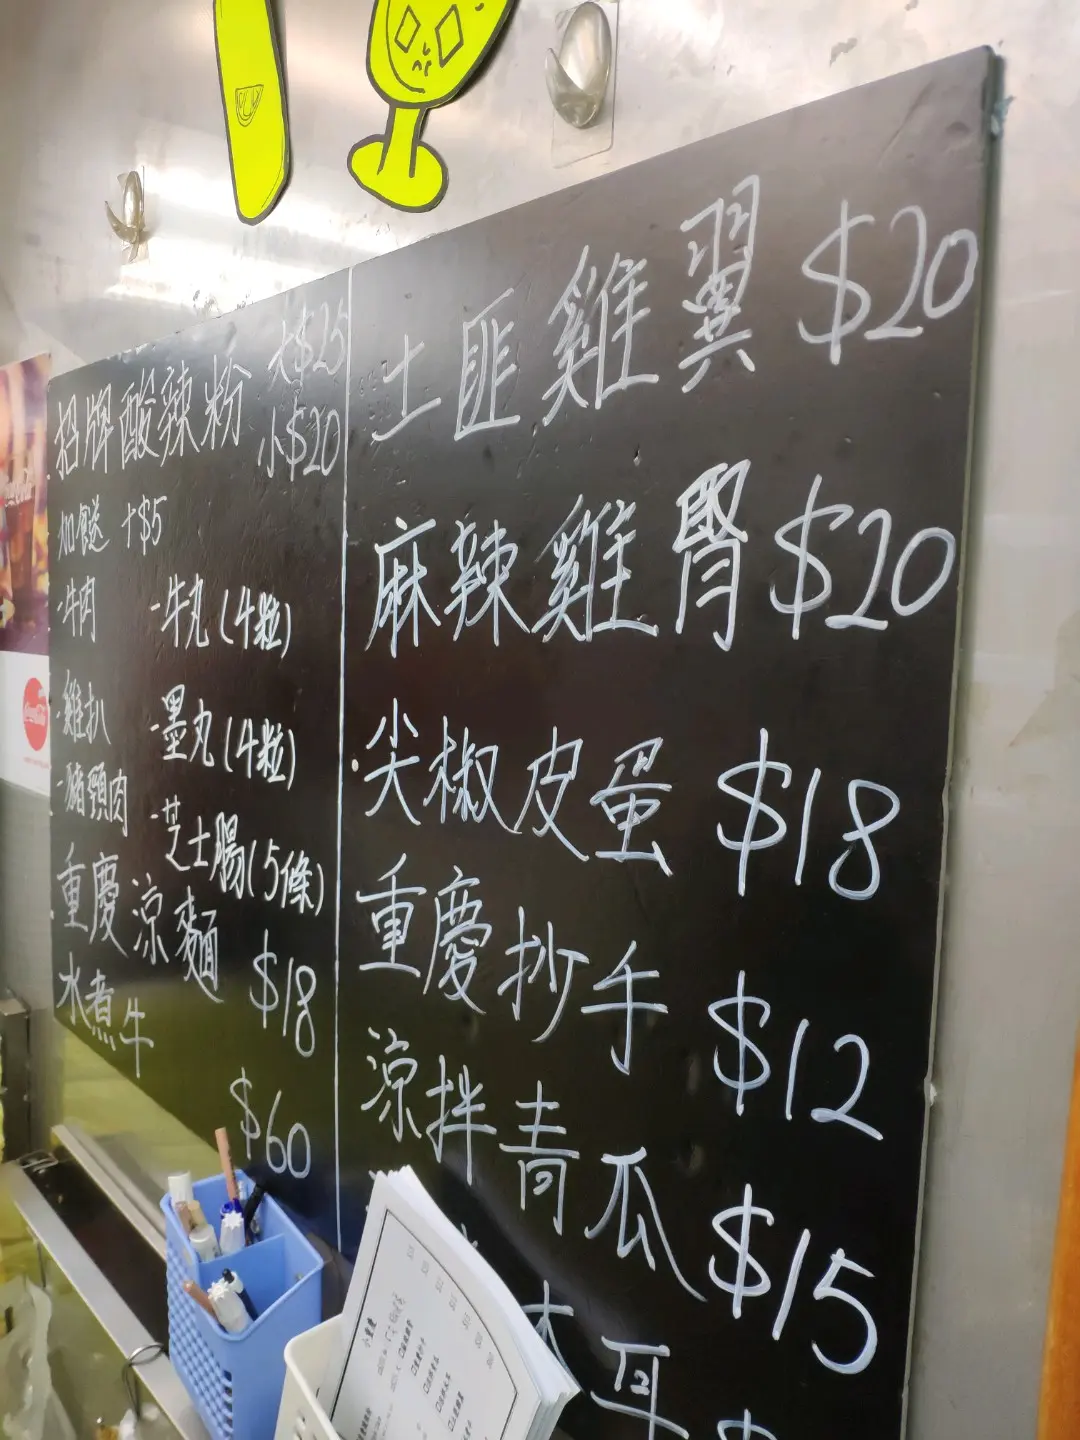 招牌酸辣粉 大$25
小$20
加餸 +$5
-牛肉 -牛丸(4粒)
-雞扒 -墨丸(4粒)
-豬頸肉 -芝士腸(5條)
重慶涼麵 $18
水煮牛 $60
土匪雞翼 $20
麻辣雞腎 $20
尖椒皮蛋 $18
重慶抄手 $12
涼拌青瓜 $15
木耳